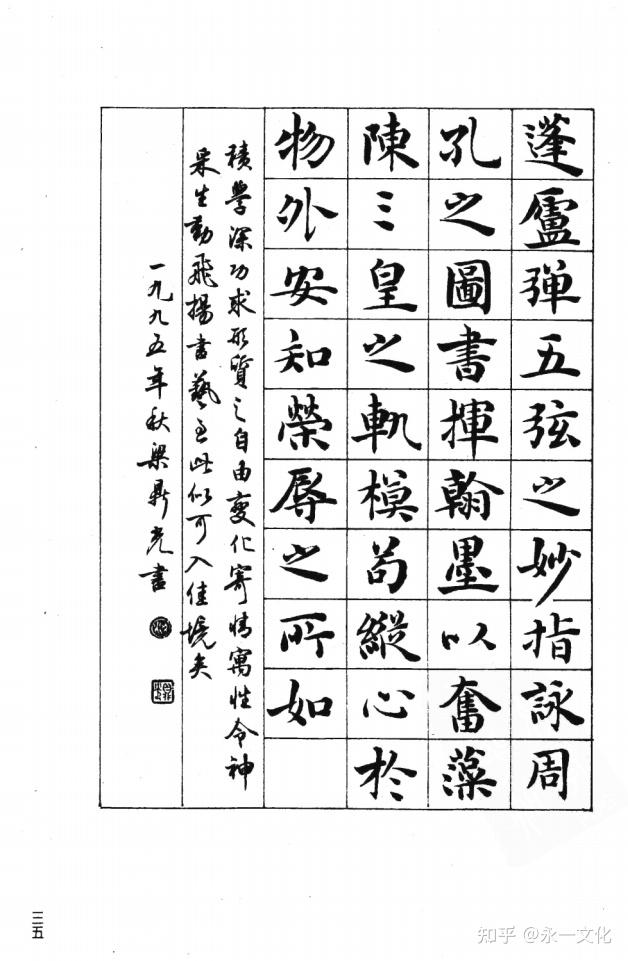 蓬廬弹五弦之妙指詠周
孔之圖書揮翰墨以奮藻
陳三皇之軌模苟縱心於
物外安知榮辱之所如
積學深功求形質之自由變化寄情寓性令神
采生動飛揚書藝至此似可入佳境矣
一九九五年秋梁鼎光書
三五
知乎 @永一文化